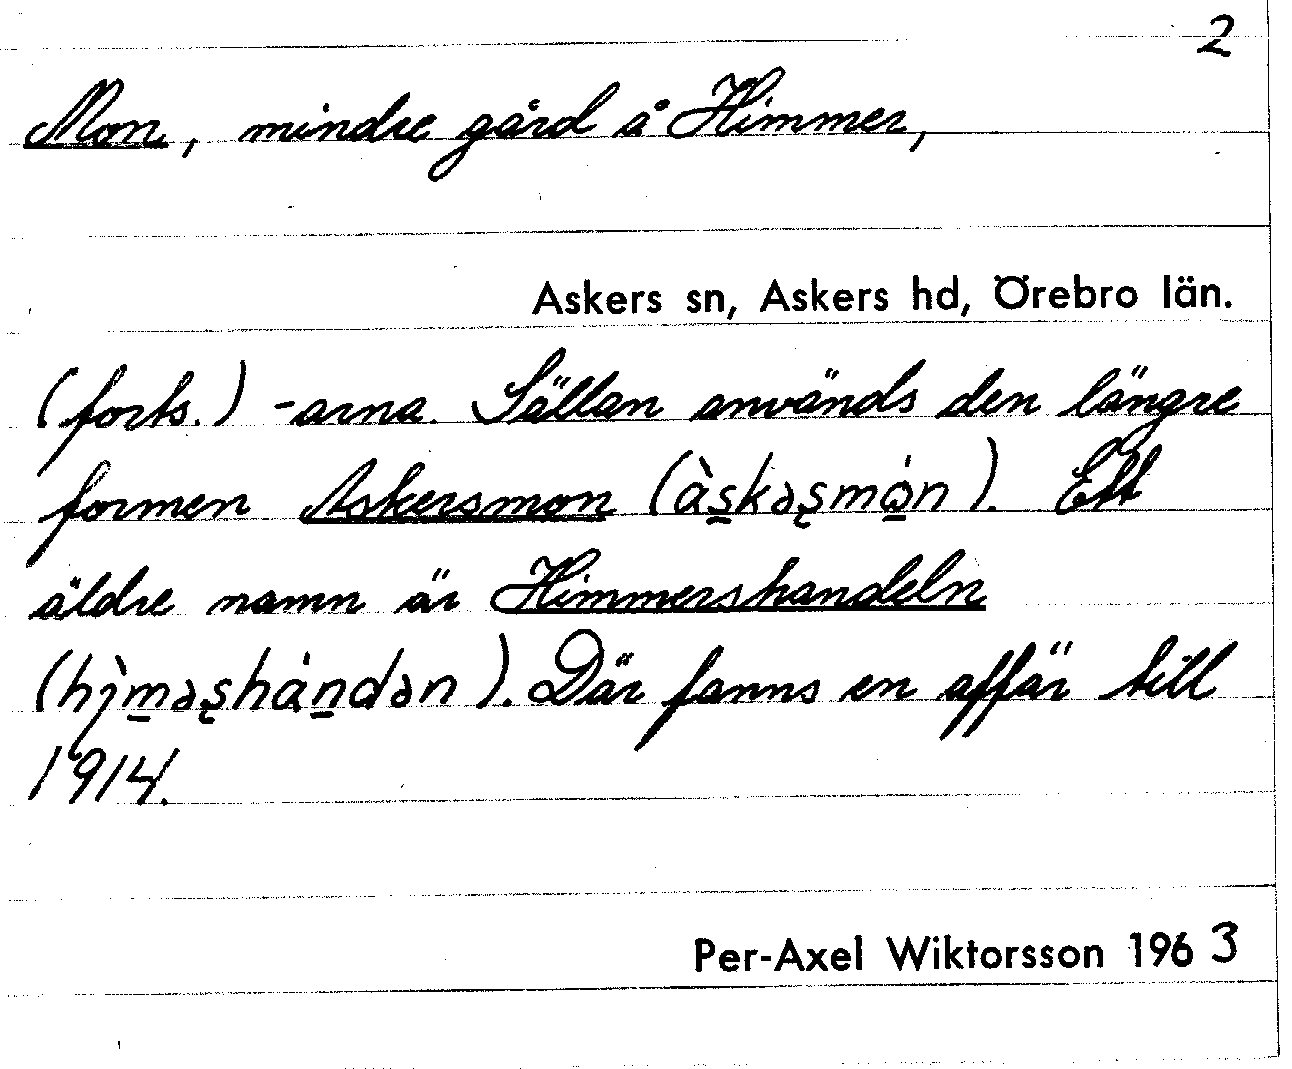 2
Mon, mindre gård å Himmer,
Askers sn, Askers hd, Örebro län.
(forts.) -arna. Sällan används den längre
formen Askersmon (às̱kəʂmȯ̱n). Ett
äldre namn är Himmershandeln
(hı̀m̱əʂhȧṉdən). Där fanns en affär till
1914.
Per-Axel Wiktorsson 1963